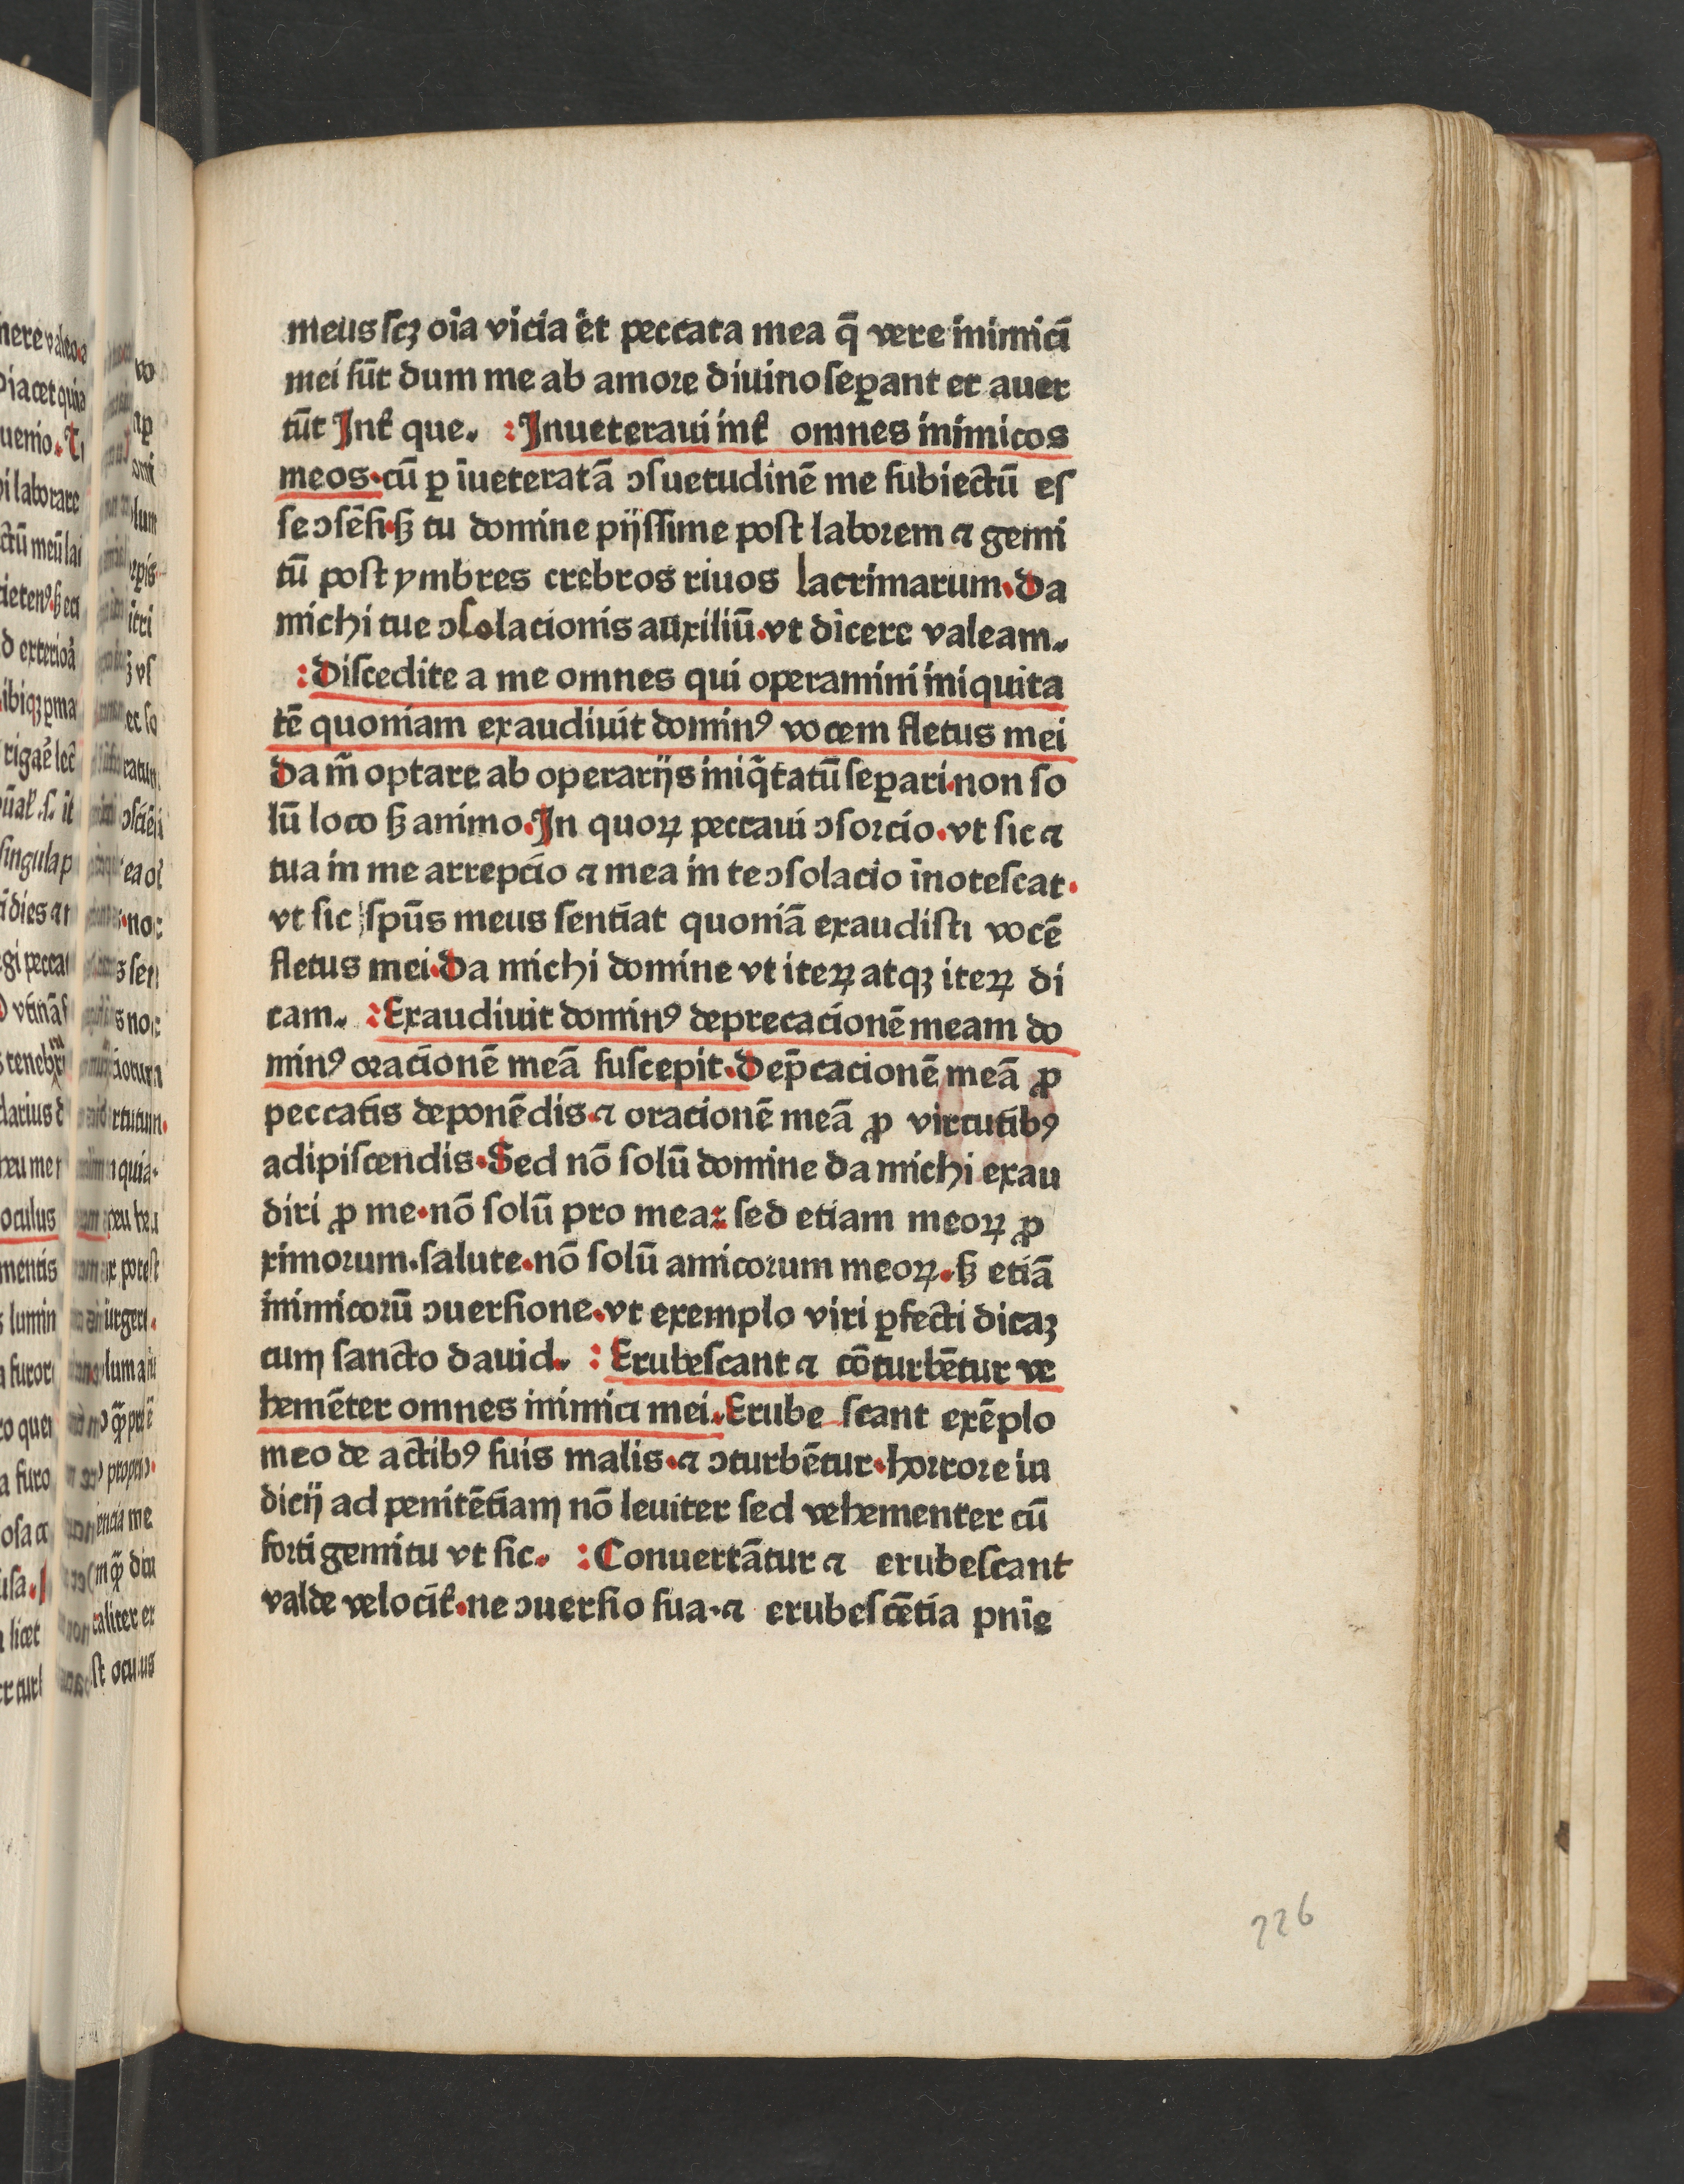 meus scꝫ oīa vicia ēt peccata mea q̄ vere inimici
mei sūt dum me ab amore diuino seꝑant et auer
tūt Int̄ que. :Inueteraui int̄ omnes inimicos
meos.cū ꝑ īueteratā ↄsuetudinē me subiectū es
se ↄsēsi.sꝫ tu domine pijssime post laborem ⁊ gemi
tū post ymbres crebros riuos lacrimarum.da
michi tue ↄsolacionis auxiliū.vt dicere valeam.
:discedite a me omnes qui operamini iniquita
tē quoniam exaudiuit dominꝰ vocem fletus mei
da m̄ optare ab operarijs iniq̄tatū seꝑari.non so
lū loco sꝫ animo.In quoꝝ peccaui ↄsorcio.vt sic ⁊
tua in me arrepcio ⁊ mea in te ↄsolacio īnotescat.
vt sic spūs meus sentiat quoniā exaudisti vocē
fletus mei.da michi domine vt iteꝝ atqꝫ iteꝝ di
cam. :Exaudiuit dominꝰ deprecacionē meam do
minꝰ oracionē meā suscepit.dep̄cacionē meā ꝓ
peccatis deponēdis.⁊ oracionē meā ꝓ virtutibꝰ
adipiscendis.Sed nō solū domine da michi exau
diri ꝓ me.nō solū pro mea: sed etiam meoꝝ ꝓ
ximorum.salute.nō solū amicorum meoꝝ.sꝫ etiā
inimicorū ↄuersione.vt exemplo viri ꝑfecti dicaꝫ
cum sancto dauid. :Erubescant ⁊ cōturbētur ve
hemēter omnes inimici mei.Erube scant exēplo
meo de actibꝰ suis malis.⁊ ↄturbētur.horrore iu
dicij ad penitētiam nō leuiter sed vehementer cū
forti gemitu vt sic. :Conuertātur ⁊ erubescant
valde velocit̄.ne ↄuersio sua.⁊ erubescētia pnīe
226